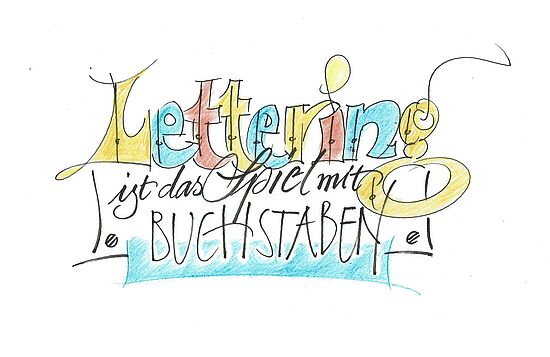 Lettering
ist das Spiel mit
BUCHSTABEN